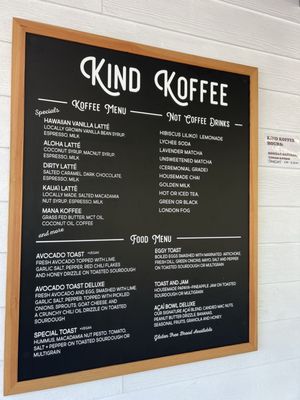 KIND KOFFEE
KOFFEE MENU
Specials
HAWAIIAN VANILLA LATTÉ
LOCALLY GROWN VANILLA BEAN SYRUP,
ESPRESSO, MILK
ALOHA LATTÉ
COCONUT SYRUP, MACNUT SYRUP,
ESPRESSO, MILK
DIRTY LATTÉ
SALTED CARAMEL, DARK CHOCOLATE,
ESPRESSO, MILK
KAUAI LATTÉ
LOCALLY MADE, SALTED MACADAMIA
NUT SYRUP, ESPRESSO, MILK
MANA KOFFEE
GRASS FED BUTTER, MCT OIL,
COCONUT OIL, COFFEE
and more
NOT COFFEE DRINKS
HIBISCUS LILIKOI LEMONADE
LYCHEE SODA
LAVENDER MATCHA
UNSWEETENED MATCHA
(CEREMONIAL GRADE)
HOUSEMADE CHAI
GOLDEN MILK
HOT OR ICED TEA
GREEN OR BLACK
LONDON FOG
FOOD MENU
AVOCADO TOAST +VEGAN
FRESH AVOCADO TOPPED WITH LIME,
GARLIC SALT, PEPPER, RED CHILI FLAKES
AND HONEY DRIZZLE ON TOASTED SOURDOUGH
AVOCADO TOAST DELUXE
FRESH AVOCADO AND EGG, SMASHED WITH LIME,
GARLIC SALT, PEPPER, TOPPED WITH PICKLED
ONIONS, SPROUTS, GOAT CHEESE AND
A CRUNCHY CHILI OIL DRIZZLE ON TOASTED
SOURDOUGH
SPECIAL TOAST +VEGAN
HUMMUS, MACADAMIA NUT PESTO, TOMATO,
SALT + PEPPER ON TOASTED SOURDOUGH OR
MULTIGRAIN
EGGY TOAST
BOILED EGGS SMASHED WITH MARINATED ARTICHOKE,
FRESH DILL, GREEN ONIONS, MAYO, SALT AND PEPPER
ON TOASTED SOURDOUGH OR MULTIGRAIN
TOAST AND JAM
HOUSEMADE PAPAYA-PINEAPPLE JAM ON TOASTED
SOURDOUGH OR MULTIGRAIN
AÇAÍ BOWL DELUXE
OUR SIGNATURE AÇAÍ BLEND, CANDIED MAC NUTS,
PEANUT BUTTER DRIZZLE, BANANA,
SEASONAL FRUITS, GRANOLA AND HONEY
Gluten Free Bread Available
KIND KOFFEE
HOURS: